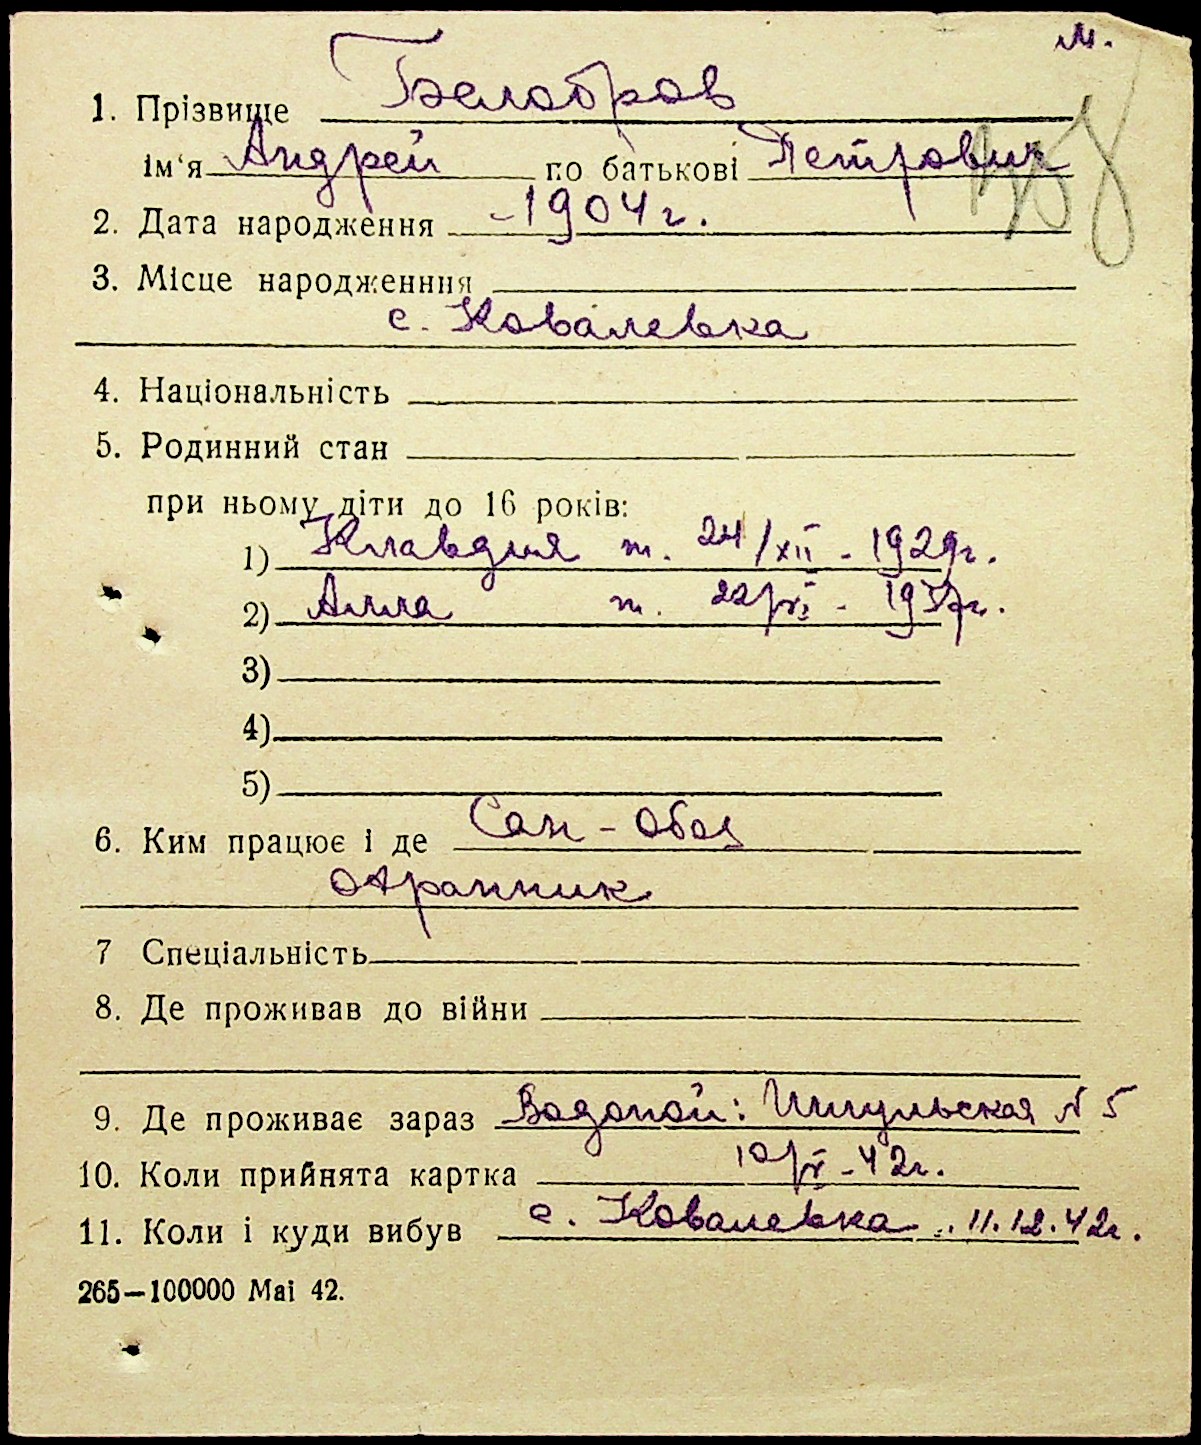 м.
1. Прізвище Белобров
ім‘я Андрей по батькові Петрович
2. Дата народження - 1904 г.
3. Місце народженння
с. Ковалевка
4. Національність
5. Родинний стан
при ньому діти до 16 років:
1) Клавдия ж. 24/XII - 1929г.
2) Алла ж. 22/VI - 1937г.
3)
4)
5)
6. Ким працює і де Сан - Обоз
охранник
7 Спеціальність
8. Де проживав до війни
9. Де проживає зараз Водопой: Ингульская № 5
10. Коли прийнята картка - 42г.
11. Коли і куди вибув с. Ковалевка 11.12.42г.
265—100000 Mai 42.